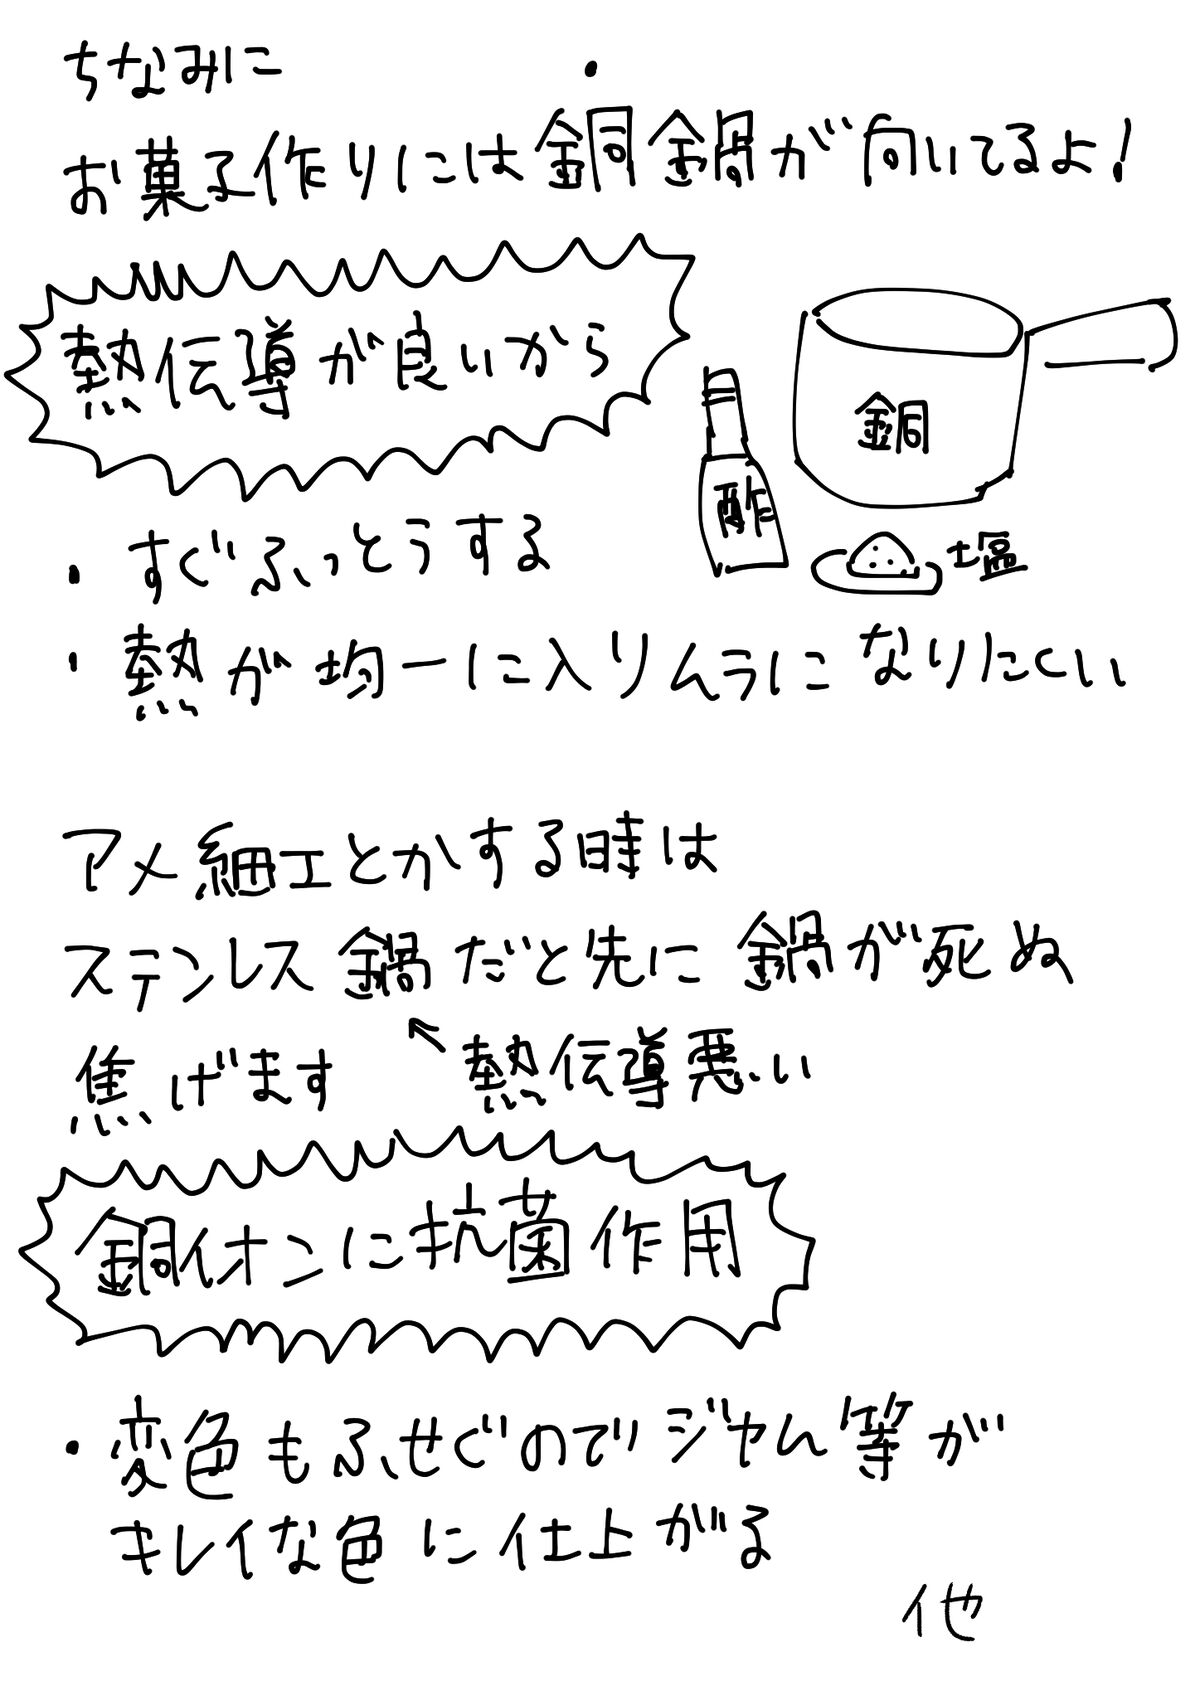 ちなみに
お菓子作りには銅鍋が向いてるよ！
熱伝導が良いから
銅
酢
塩
・すぐふっとうする
・熱が均一に入りムラになりにくい
アメ細工とかする時は
ステンレス鍋だと先に鍋が死ぬ
焦げます
↖熱伝導悪い
銅イオンに抗菌作用
・変色もふせぐのでジャム等が
キレイな色に仕上がる
他